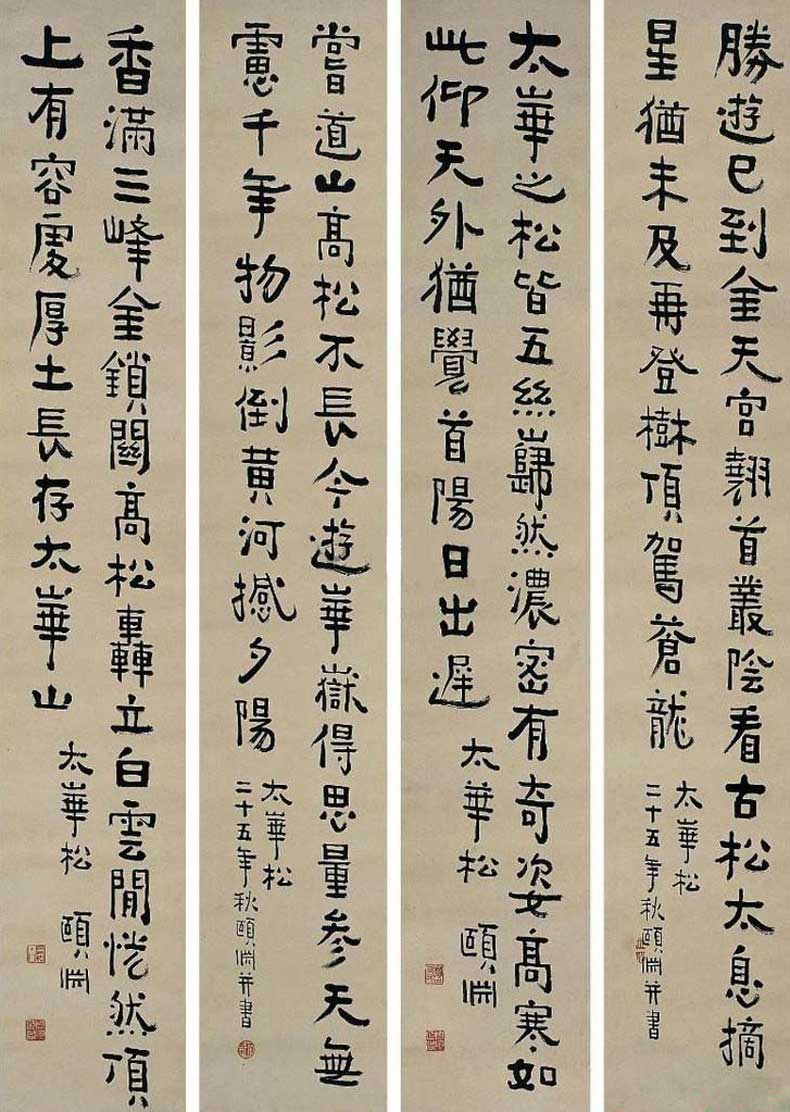 勝遊已到金天宮翹首叢陰看古松太息摘
星猶未及再登樹頂駕蒼龍
太華松
二十五年秋頤淵并書
太華之松皆五絲巋然濃密有奇姿高寒如
此仰天外猶覺首陽日出遲
太華松 頤淵
嘗道山高松不長今遊華嶽得思量參天無
慮千年物影倒黃河撼夕陽
太華松
二十五年秋頤淵并書
香滿三峰金鎖關高松轟立白雲閒恍然頂
上有容處厚土長存太華山
太華松 頤淵